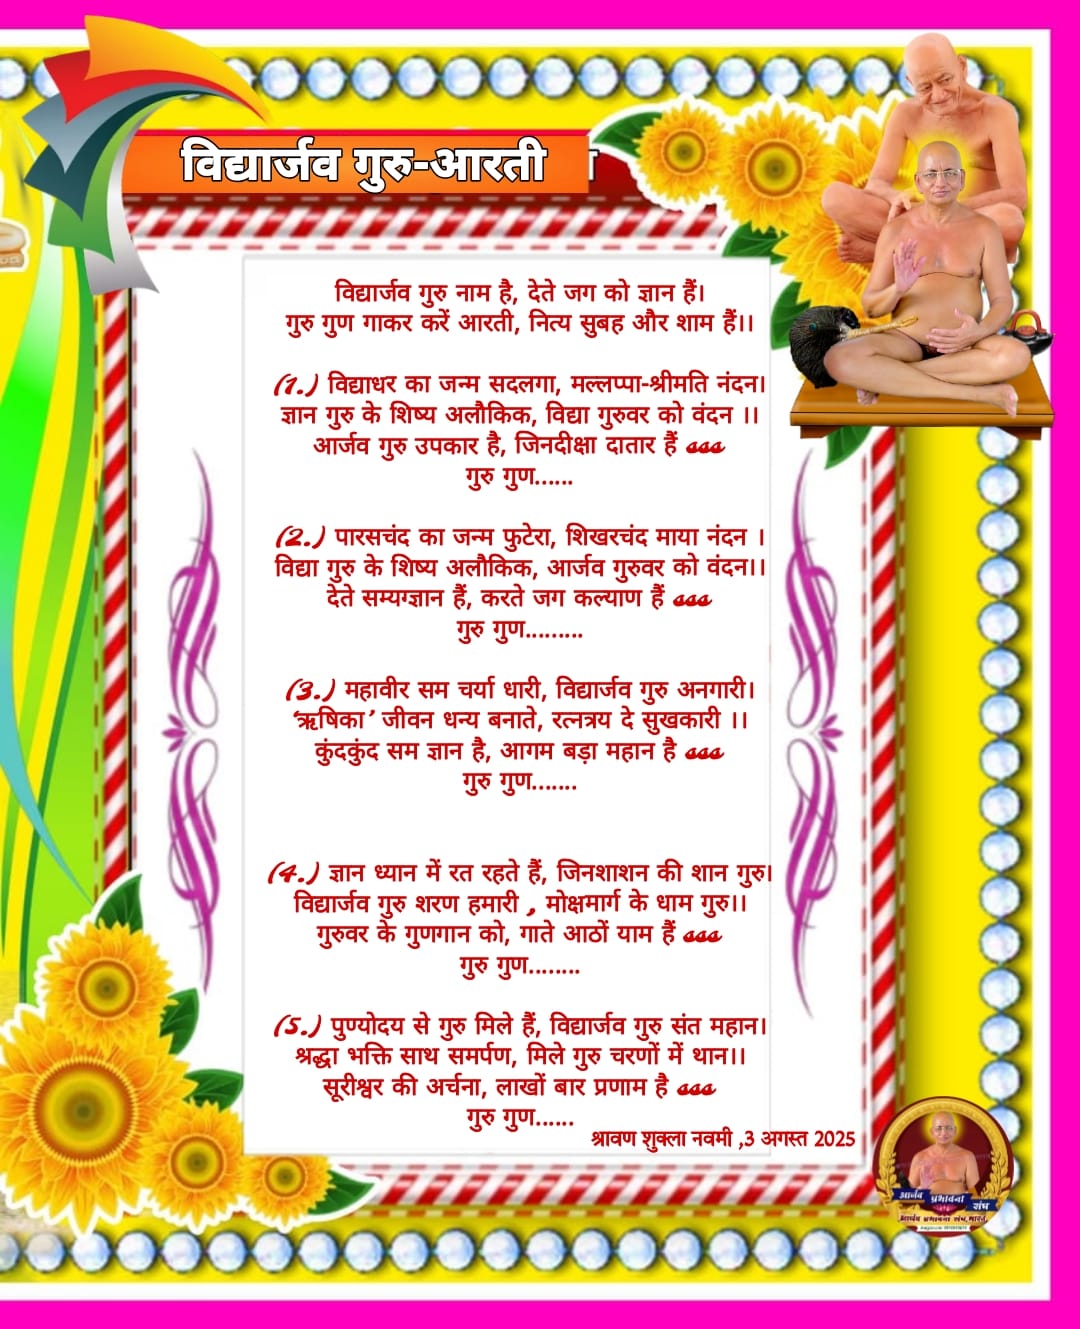 विद्यार्जव गुरु-आरती
विद्यार्जव गुरु नाम है, देते जग को ज्ञान हैं।
गुरु गुण गाकर करें आरती, नित्य सुबह और शाम हैं।।
(1.) विद्याधर का जन्म सदलगा, मल्लप्पा-श्रीमति नंदन।
ज्ञान गुरु के शिष्य अलौकिक, विद्या गुरुवर को वंदन ।।
आर्जव गुरु उपकार है, जिनदीक्षा दातार हैं ऽऽऽ
गुरु गुण......
(2.) पारसचंद का जन्म फुटेरा, शिखरचंद माया नंदन ।
विद्या गुरु के शिष्य अलौकिक, आर्जव गुरुवर को वंदन।।
देते सम्यग्ज्ञान हैं, करते जग कल्याण हैं ऽऽऽ
गुरु गुण.........
(3.) महावीर सम चर्या धारी, विद्यार्जव गुरु अनगारी।
'ऋषिका' जीवन धन्य बनाते, रत्नत्रय दे सुखकारी ।।
कुंदकुंद सम ज्ञान है, आगम बड़ा महान है ऽऽऽ
गुरु गुण.......
(4.) ज्ञान ध्यान में रत रहते हैं, जिनशाशन की शान गुरु।
विद्यार्जव गुरु शरण हमारी , मोक्षमार्ग के धाम गुरु।।
गुरुवर के गुणगान को, गाते आठों याम हैं ऽऽऽ
गुरु गुण........
(5.) पुण्योदय से गुरु मिले हैं, विद्यार्जव गुरु संत महान।
श्रद्धा भक्ति साथ समर्पण, मिले गुरु चरणों में थान।।
सूरीश्वर की अर्चना, लाखों बार प्रणाम है ऽऽऽ
गुरु गुण......
श्रावण शुक्ला नवमी ,3 अगस्त 2025
आर्जव प्रभावना संघ
आर्जव प्रभावना संघ, भारत